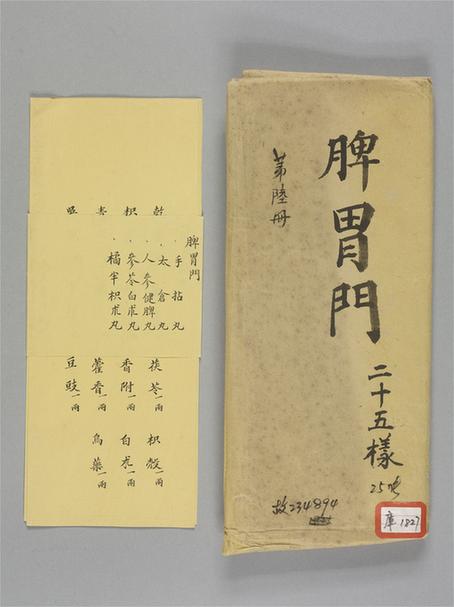 脾胃門
二十五樣
25
第陸冊
故234894
庫 1827
脾胃門
手拈丸
太倉丸
人參健脾丸
參苓白朮丸
橘半枳朮丸
茯苓一兩 枳殼一兩
香附一兩 白朮一兩
藿香一兩 烏藥一兩
豆豉一兩